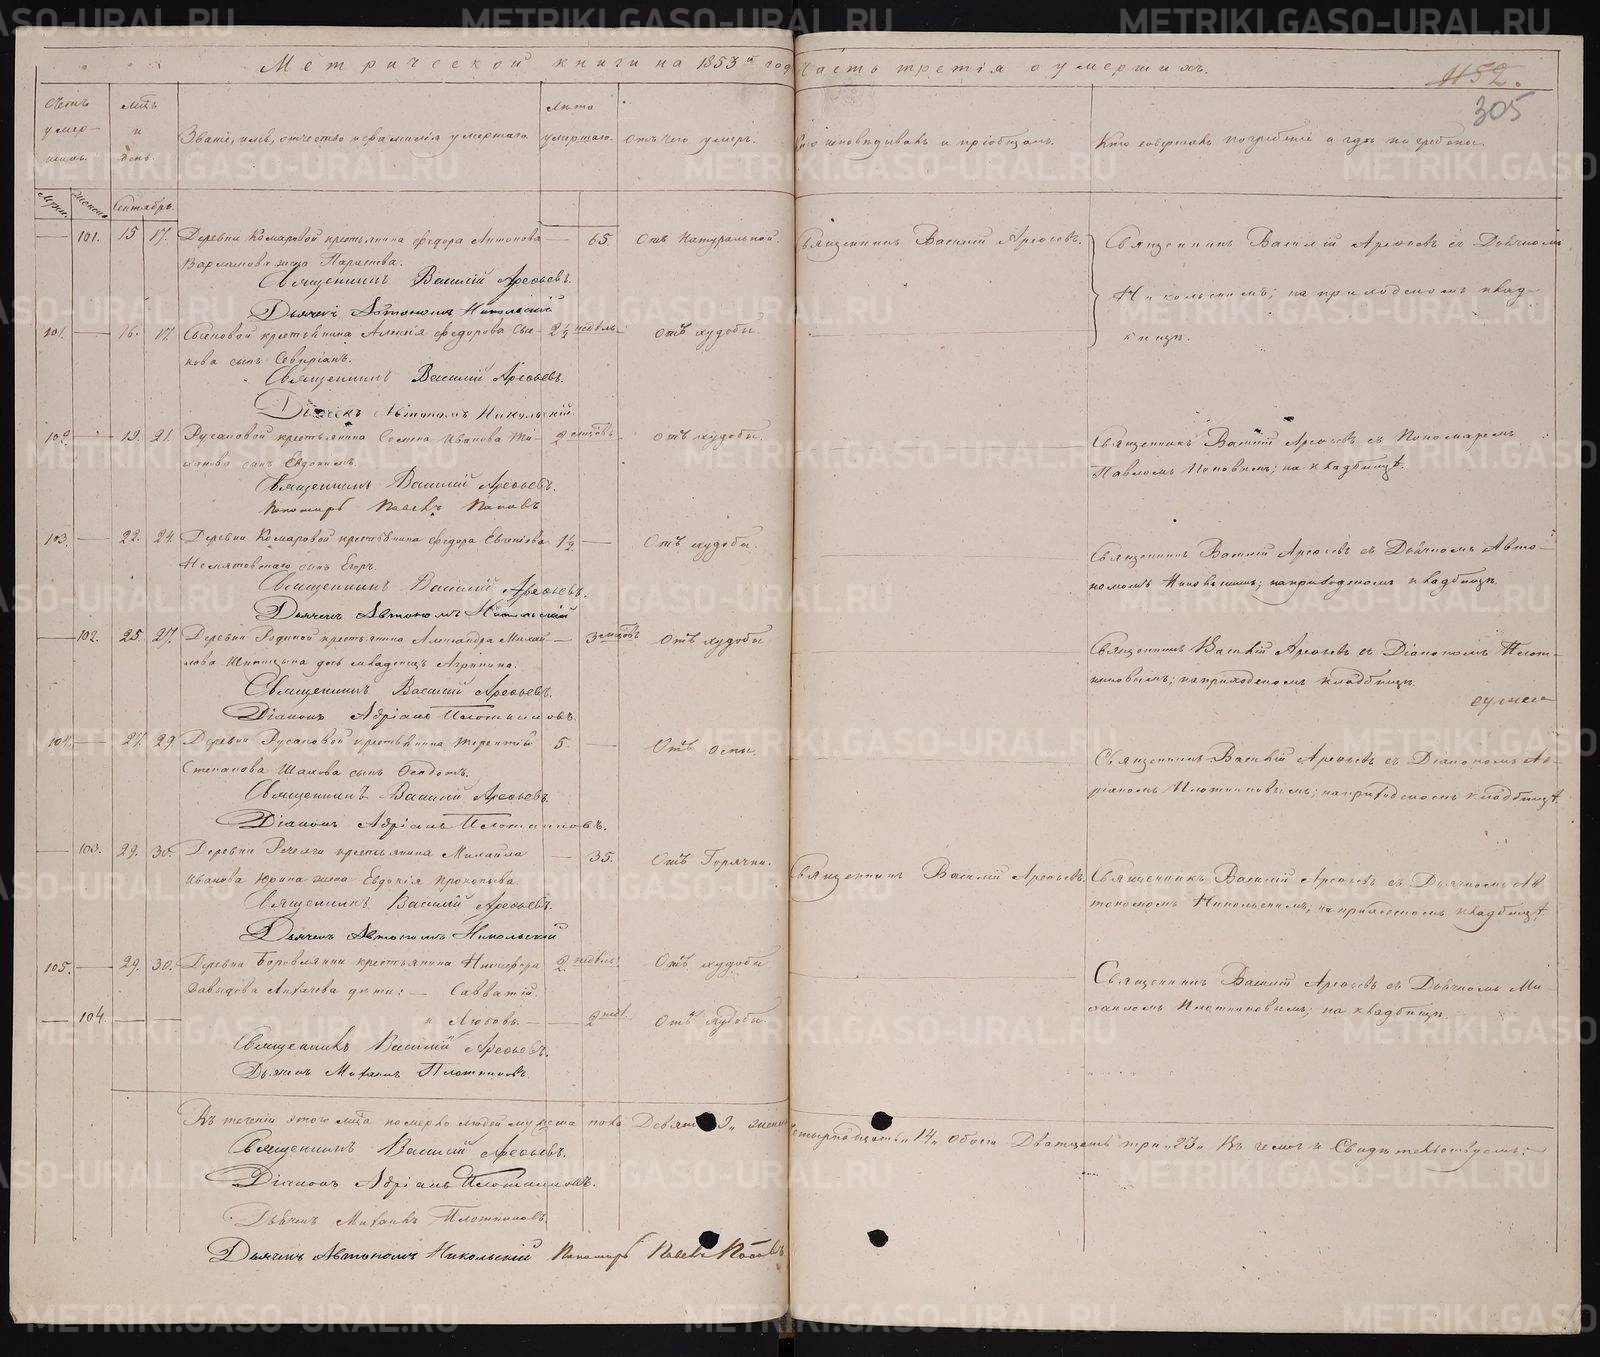 Метрической книги на 1853й годъ Часть третія о умершихъ.
1152.
305
Счетъ умершихъ.
Мѣсяцъ и день.
Званіе, имя, отчество и фамилія умершаго.
Лѣта умершаго.
Отъ чего умеръ.
Кто исповѣдывалъ и пріобщалъ.
Кто совершалъ погребеніе и гдѣ погребены.
Мужск. Женск. Сентябрь.
101. 15 17. Деревни Комаровой крестьянина Федора Антонова — 65. Отъ Натуральной. Священникъ Василій Арефьевъ. Священникъ Василій Арефьевъ съ Дьячкомъ
жена Параскева.
Священникъ Василій Арефьевъ.
Никольскимъ; на приходскомъ клад-
Дьячекъ Автономъ Никольскій
бищѣ.
101. — 16. 17. крестьянина Алексія Федорова 2½ недѣль Отъ худобы.
сынъ
Священникъ Василій Арефьевъ.
Дьячекъ Автономъ Никольскій
102. — 19. 21. Русаковой крестьянина Семена Иванова 2 мѣсяцовъ Отъ худобы. Священникъ Василій Арефьевъ съ Пономаремъ
сынъ Евдокимъ.
Павломъ Поповымъ; на кладбищѣ.
Священникъ Василій Арефьевъ.
Пономарь Павелъ Поповъ
103. — 22. 24. Деревни Комаровой крестьянина Федора 1½ — Отъ худобы. Священникъ Василій Арефьевъ съ Дьячкомъ Авто-
сынъ Егоръ.
номомъ Никольскимъ; на приходскомъ кладбищѣ.
Священникъ Василій Арефьевъ.
Дьячекъ Автономъ Никольскій
— 102. 25 27. Деревни Родиной крестьянина Александра Михай- — 3 мѣсяцовъ Отъ худобы Священникъ Василій Арефьевъ съ Діакономъ Плот-
лова Шипицына дочь младенецъ Агрипина.
никовымъ; на приходскомъ кладбищѣ.
Священникъ Василій Арефьевъ.
Діаконъ Адріанъ Плотниковъ.
104. — 27. 29. Деревни Русаковой крестьянина Терентія 5. — Отъ оспы. Священникъ Василій Арефьевъ съ Діакономъ Ад-
Степанова сынъ Федотъ.
ріаномъ Плотниковымъ; на приходскомъ кладбищѣ.
Священникъ Василій Арефьевъ.
Діаконъ Адріанъ Плотниковъ.
— 103. 29. 30. Деревни крестьянина Михаила — 35. Отъ Горячки. Священникъ Василій Арефьевъ. Священникъ Василій Арефьевъ съ Дьячкомъ Ав-
Иванова Юрина жена Евдокія Прокопьева.
тономомъ Никольскимъ; на приходскомъ кладбищѣ.
Священникъ Василій Арефьевъ.
Дьячекъ Автономъ Никольскій
105. — 29. 30. Деревни Боровлянки крестьянина Никифора 2 недѣль Отъ худобы Священникъ Василій Арефьевъ съ Дьячкомъ Ми-
Давыдова дѣти: — Савватій.
хаиломъ Плотниковымъ; на кладбищѣ.
— 104. — и Любовь. — 2 нед. Отъ худобы.
Священникъ Василій Арефьевъ.
Дьячекъ Михаилъ Плотниковъ.
Въ теченіи этого мѣсяца померло людей мужеска пола Девять „9„ женска четырнадцать „14„ обоего Двадцать три „23„ Въ чемъ и Свидѣтельствуемъ:
Священникъ Василій Арефьевъ.
Діаконъ Адріанъ Плотниковъ.
Дьячекъ Михаилъ Плотниковъ
Дьячекъ Автономъ Никольскій Пономарь Павелъ Поповъ
METRIKI.GASO-URAL.RU